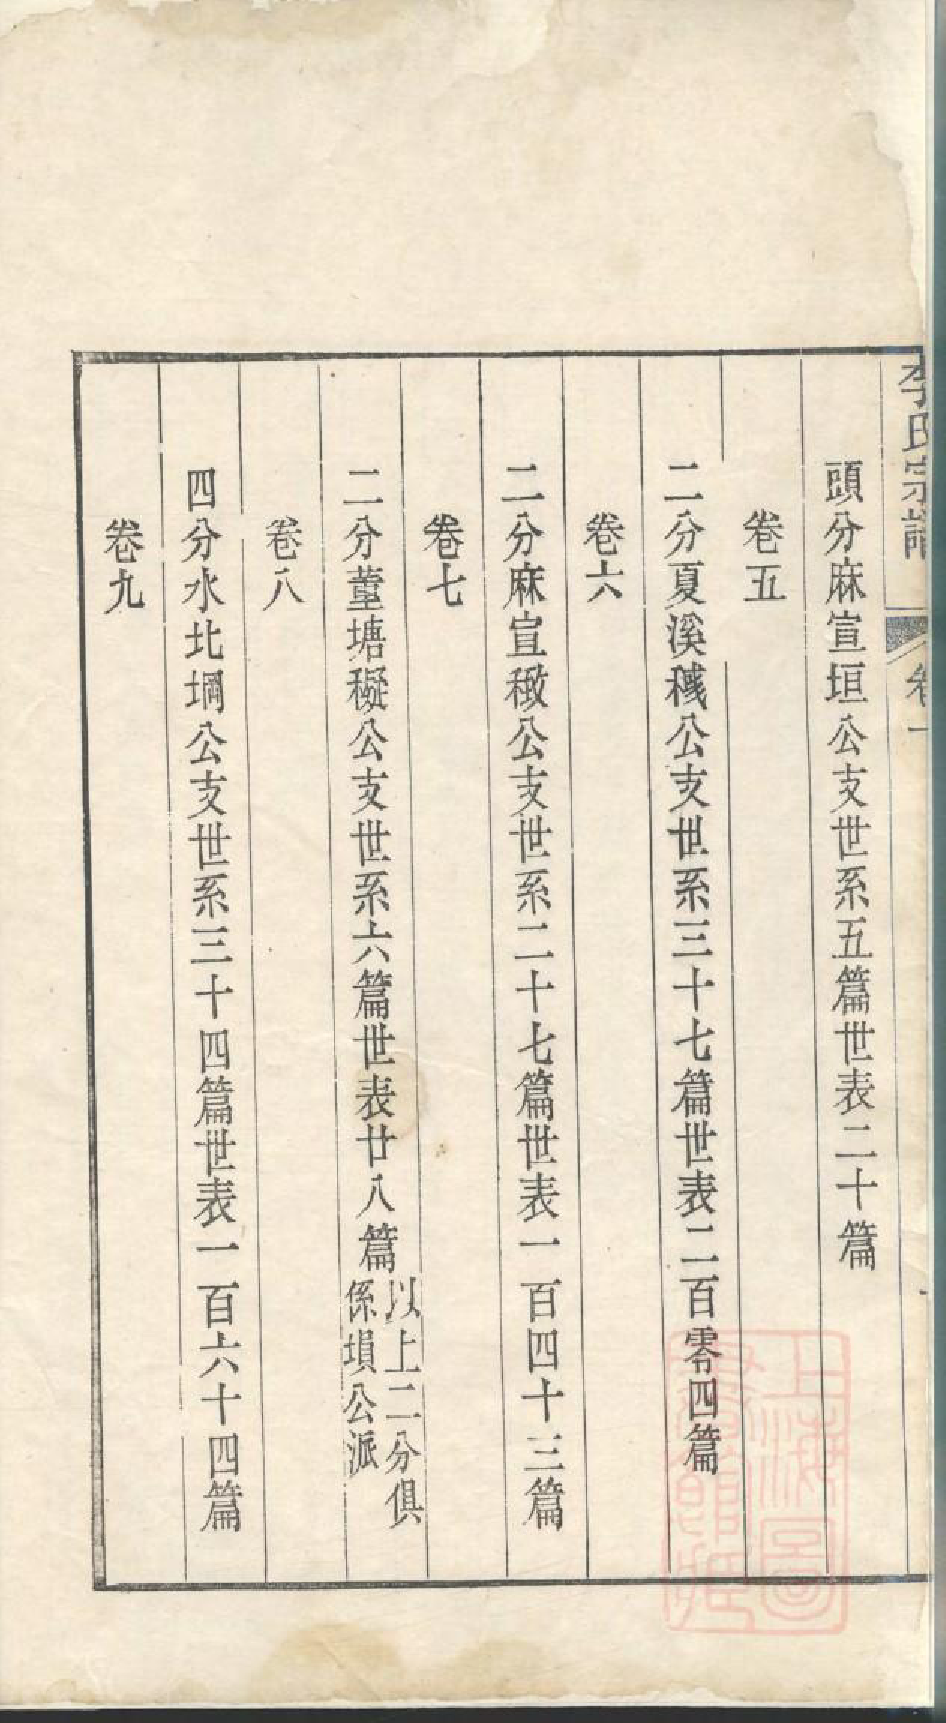 李氏宗譜
卷一
頭分麻宣垣公支世系五篇世表二十篇
卷五
二分夏溪穢公支世系三十七篇世表二百零四篇
卷六
二分麻宣公支世系二十七篇世表一百四十三篇
卷七
二分董塘公支世系六篇世表廿八篇以上二分俱
係塤公派
卷八
四分水北堈公支世系三十四篇世表一百六十四篇
卷九
上海圖